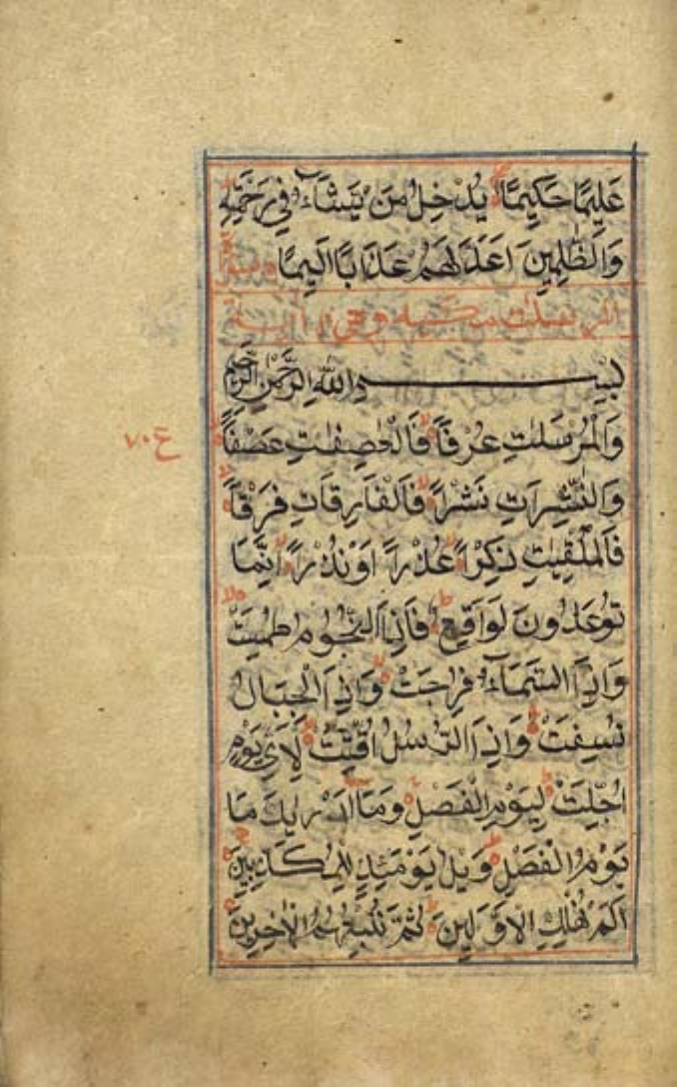 عَلِيمًا حَكِيمًا يُدْخِلُ مَنْ يَشَآءُ فِي رَحْمَتِهِ
وَالظّٰلِمِينَ اَعَدَّ لَهُمْ عَذَابًا اَلِيمًا
بِسْمِ اللّٰهِ الرَّحْمٰنِ الرَّحِيمِ
وَالْمُرْسَلٰتِ عُرْفًا فَالْعٰصِفٰتِ عَصْفًا
وَالنّٰشِرَاتِ نَشْرًا فَالْفَارِقَاتِ فَرْقًا
فَالْمُلْقِيٰتِ ذِكْرًا عُذْرًا اَوْ نُذْرًا اِنَّمَا
تُوعَدُونَ لَوَاقِعٌ فَاِذَا النُّجُومُ طُمِسَتْ
وَاِذَا السَّمَآءُ فُرِجَتْ وَاِذَا الْجِبَالُ
نُسِفَتْ وَاِذَا الرُّسُلُ اُقِّتَتْ لِاَيِّ يَوْمٍ
اُجِّلَتْ لِيَوْمِ الْفَصْلِ وَمَآ اَدْرٰىكَ مَا
يَوْمُ الْفَصْلِ وَيْلٌ يَوْمَئِذٍ لِلْمُكَذِّبِينَ
اَلَمْ نُهْلِكِ الْاَوَّلِينَ ثُمَّ نُتْبِعُهُمُ الْاٰخِرِينَ